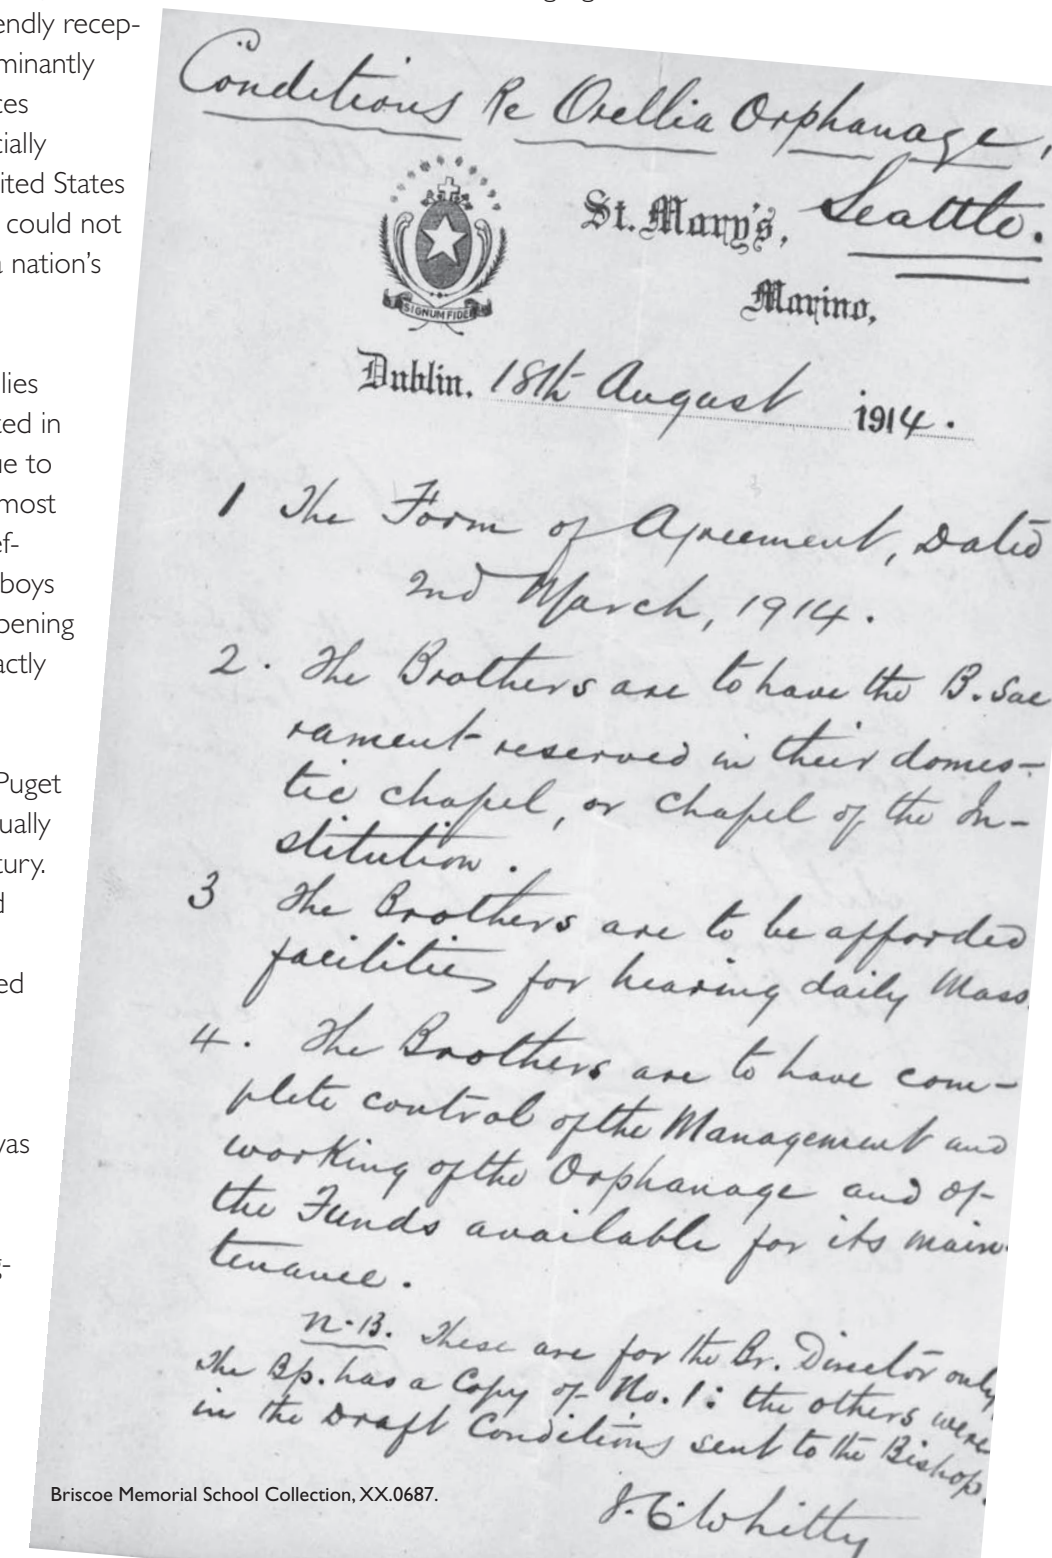 endly recep-
minantly
ces
tially
ited States
could not
a nation's
lies
ted in
ue to
most
ef-
boys
pening
actly
Puget
ually
tury.
d
ed
was
g-
Conditions Re Orellia Orphanage,
St. Mary's, Seattle.
Marino,
SIGNUM FIDEI
Dublin. 18th August 1914.
1 The Form of Agreement, Dated
2nd March, 1914.
2. The Brothers are to have the B. Sac
rament reserved in their domes-
tic chapel, or chapel of the In-
stitution.
3 The Brothers are to be afforded
facilities for hearing daily Mass.
4. The Brothers are to have com-
plete control of the Management and
working of the Orphanage and of
the Funds available for its main-
tenance.
N.B. These are for the Br. Director only
The Bp. has a Copy of No. 1: the others were
in the Draft Conditions sent to the Bishop.
J. C. Whitty
Briscoe Memorial School Collection, XX.0687.